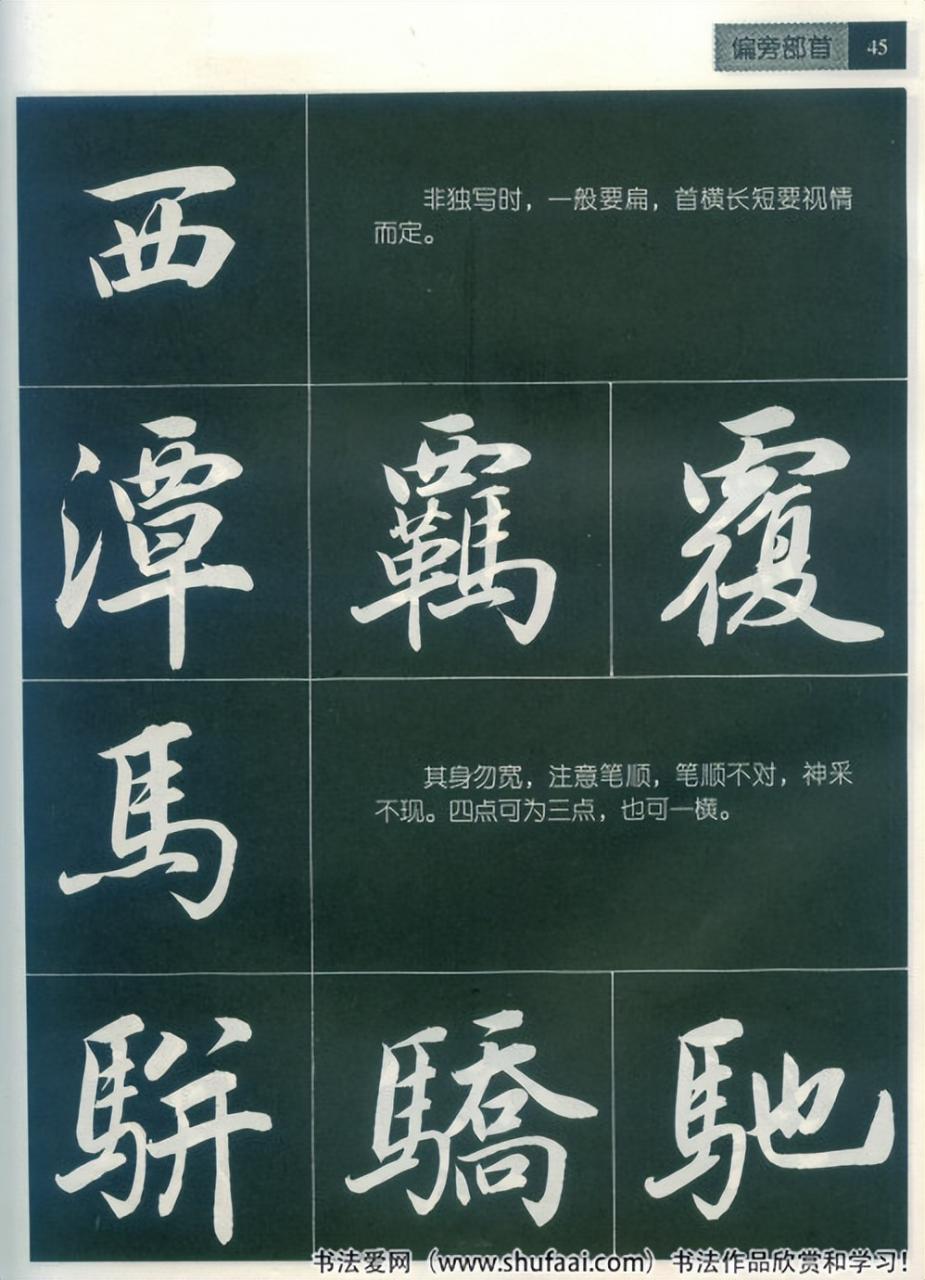 偏旁部首 45
西
非独写时，一般要扁，首横长短要视情
而定。
潭 羈 覆
馬
其身勿宽，注意笔顺，笔顺不对，神采
不现。四点可为三点，也可一横。
駢 驕 馳
书法爱网（www.shufaai.com）书法作品欣赏和学习！